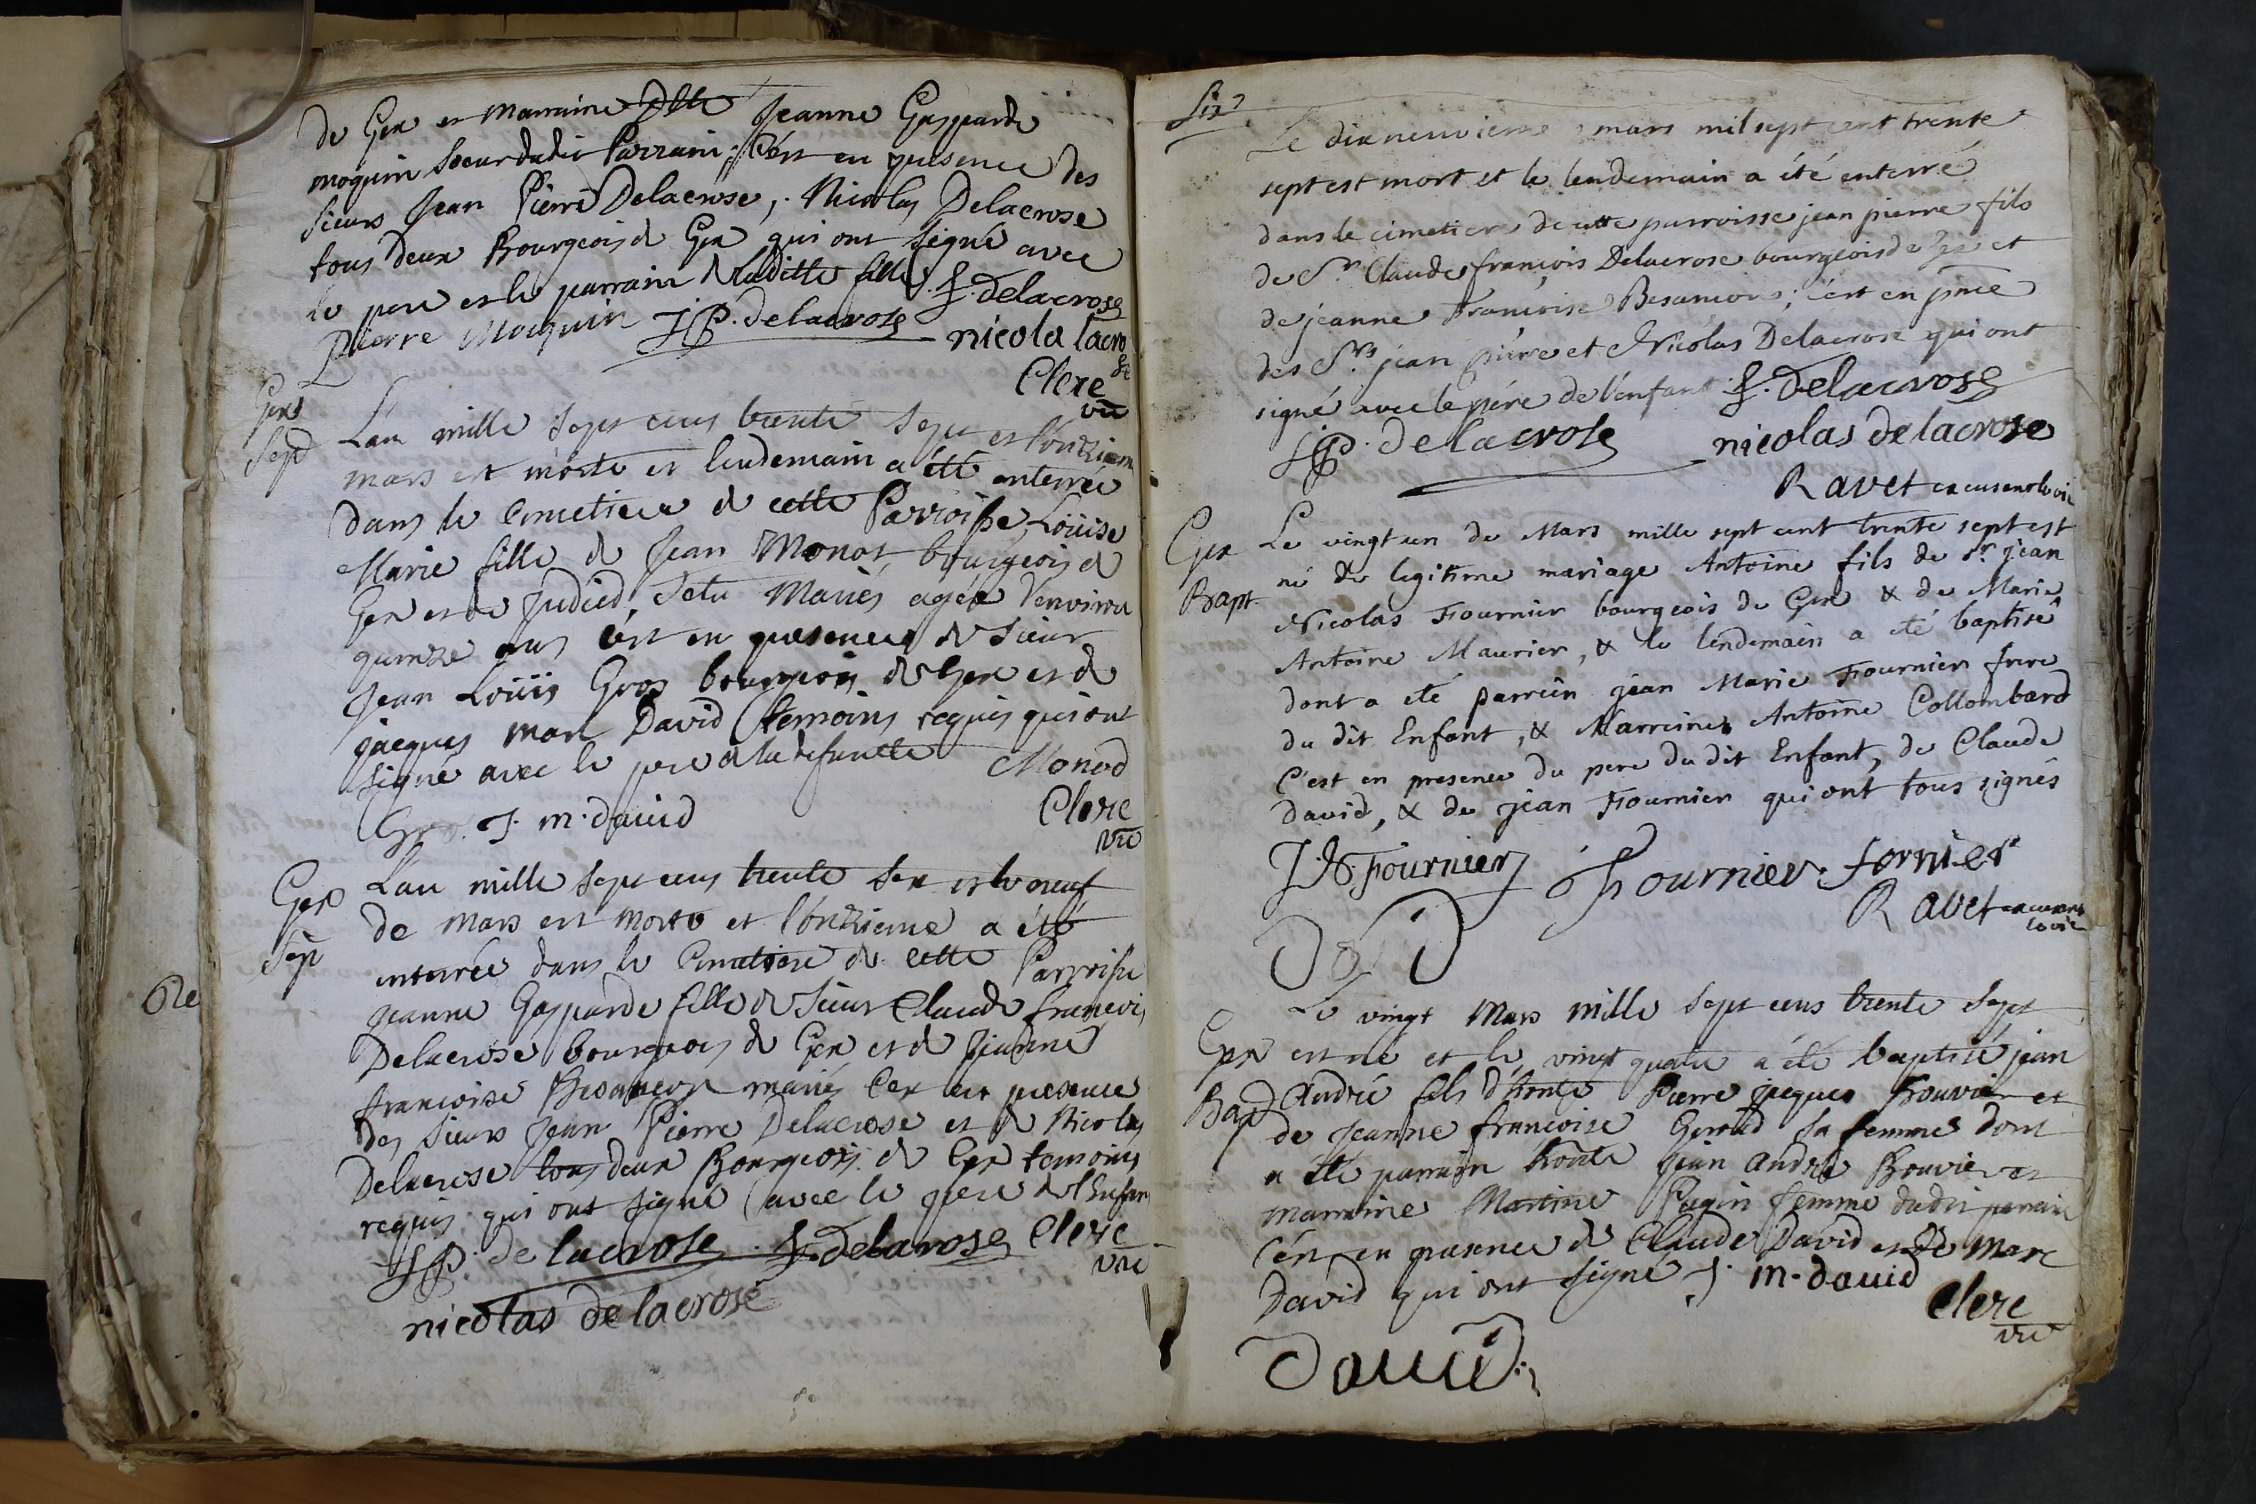 de Gex et marraine Dlle Jeanne Gasparde
moquin soeur dudit Parrain; C'est en presence des
sieurs Jean Pierre Delacrose, Nicolas Delacrose
tous deux Bourgeois de Gex qui ont signé avec
le pere et le parrain de laditte fille f. delacrose
Pierre Moquin JP. delacrose nicola lacro
se
Clerc
vic
Gex
Sep
Lan mille Sept cens trente Sept et l'onzieme
mars est morte et lendemain a été enterrée
dans le Cimetiere de cette Parroisse, Loüise
Marie fille de Jean Monot, bourgeois de
Gex et de Judied, Mariés agée d'environ
quinze ans C'est en presence de Sieur
Jean Loüis Gros bourgeois de Gex et de
jacques marc David temoins requis qui ont
signé avec le pere de la defuncte Monod
Gros. J. m. david
Clerc
vic
Gex
Sep
Lan mille Sept cens trente Sex et le neuf
de mars est morte et l'onzieme a été
enterrée dans le Cimetiere de cette Parroisse
jeanne Gasparde fille de Sieur Claude françois
Delacrose bourgeois de Gex et de Jeanne
francoise Besançon mariés C'es en presence
des Sieurs Jean Pierre Delacrose et de Nicolas
Delacrose tous deux Bourgeois de Gex temoins
requis qui ont signé avec le pere de l'Enfan
JP. de lacrose f. delacrose Clerc
vic
nicolas de lacrose
Le dixneuvieme mars mil sept cent trente
sept est mort et le lendemain a été enterré
dans le cimetiere de cette parroisse jean pierre fils
de Sr. Claude françois Delacrose bourgeois de Gex et
de jeanne Françoise Besançon; c'est en pnce
des Srs. jean pierre et Nicolas Delacrose qui ont
signé avec le pére de l'enfant f. delacrose
JP. de lacrose nicolas de lacrose
Ravet
Gex
Bapt.
Le vingt un de Mars mille sept cent trente sept est
né de legitime mariage Antoine fils de Sr. jean
Nicolas Fournier bourgeois de Gex & de Marie
Antoine Maurier, & le lendemain a eté baptisé
dont a eté parrein jean Marie Fournier frere
du dit Enfant, & Marreine Antoine Collombard
C'est en presence du pere du dit Enfant, de Claude
David, & de jean Fournier qui ont tous signés
J. N. Fournier Fournier fornier
Ravet
Gex
Bap
Le vingt Mars mille Sept cens trente Sept
est né et le vingt quatre a été baptisé jean
André fils d'honte Pierre jacques Bouvier et
de Jeanne francoise Giroud sa femme dont
a été parrain honte jean andré Bouvier et
marraine Martine Pugin femme dudit parrain
C'en en presence de Claude David et De marc
David qui ont signé J. m. david
Clerc
vic
David